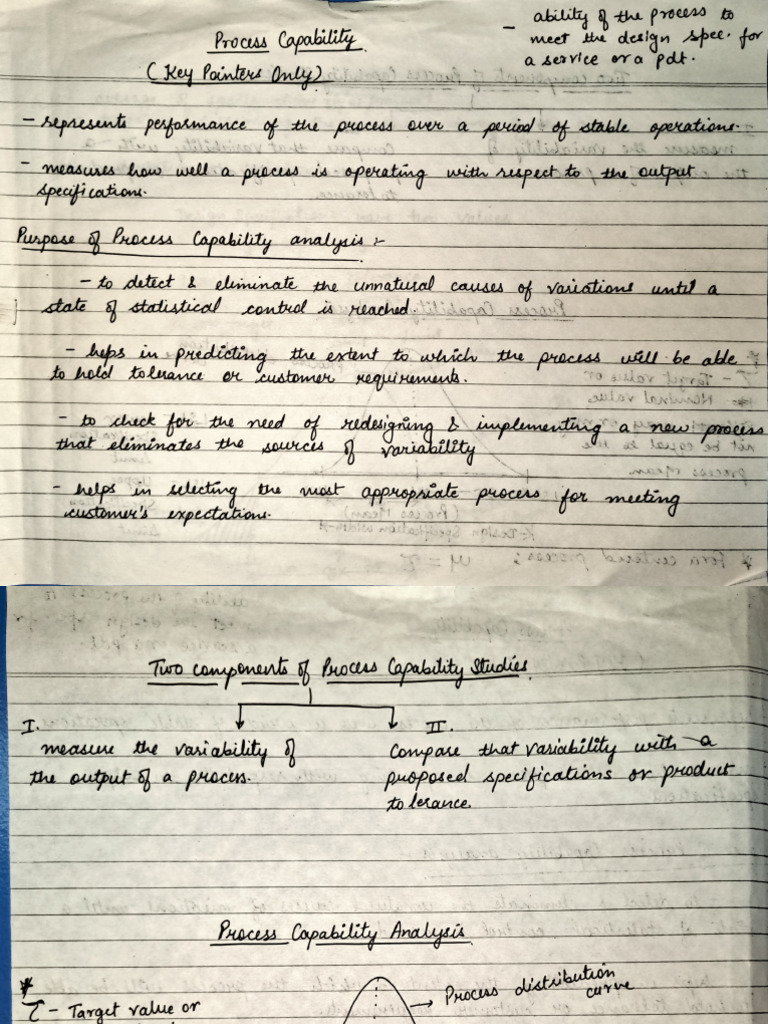 Process Capability
(Key Pointers Only)
- ability of the process to
meet the design spec. for
a service or a pdt.
- represents performance of the process over a period of stable operations.
- measures how well a process is operating with respect to the output
specifications.
Purpose of Process Capability analysis :-
- to detect & eliminate the unnatural causes of variations until a
state of statistical control is reached.
- helps in predicting the extent to which the process will be able
to hold tolerance or customer requirements.
- to check for the need of redesigning & implementing a new process
that eliminates the sources of variability
- helps in selecting the most appropriate process for meeting
customer's expectations.
Two components of Process Capability Studies
I.
measure the variability of
the output of a process.
II.
Compare that variability with a
proposed specifications or product
tolerance.
Process Capability Analysis
*
τ - Target value or
→ Process distribution
curve